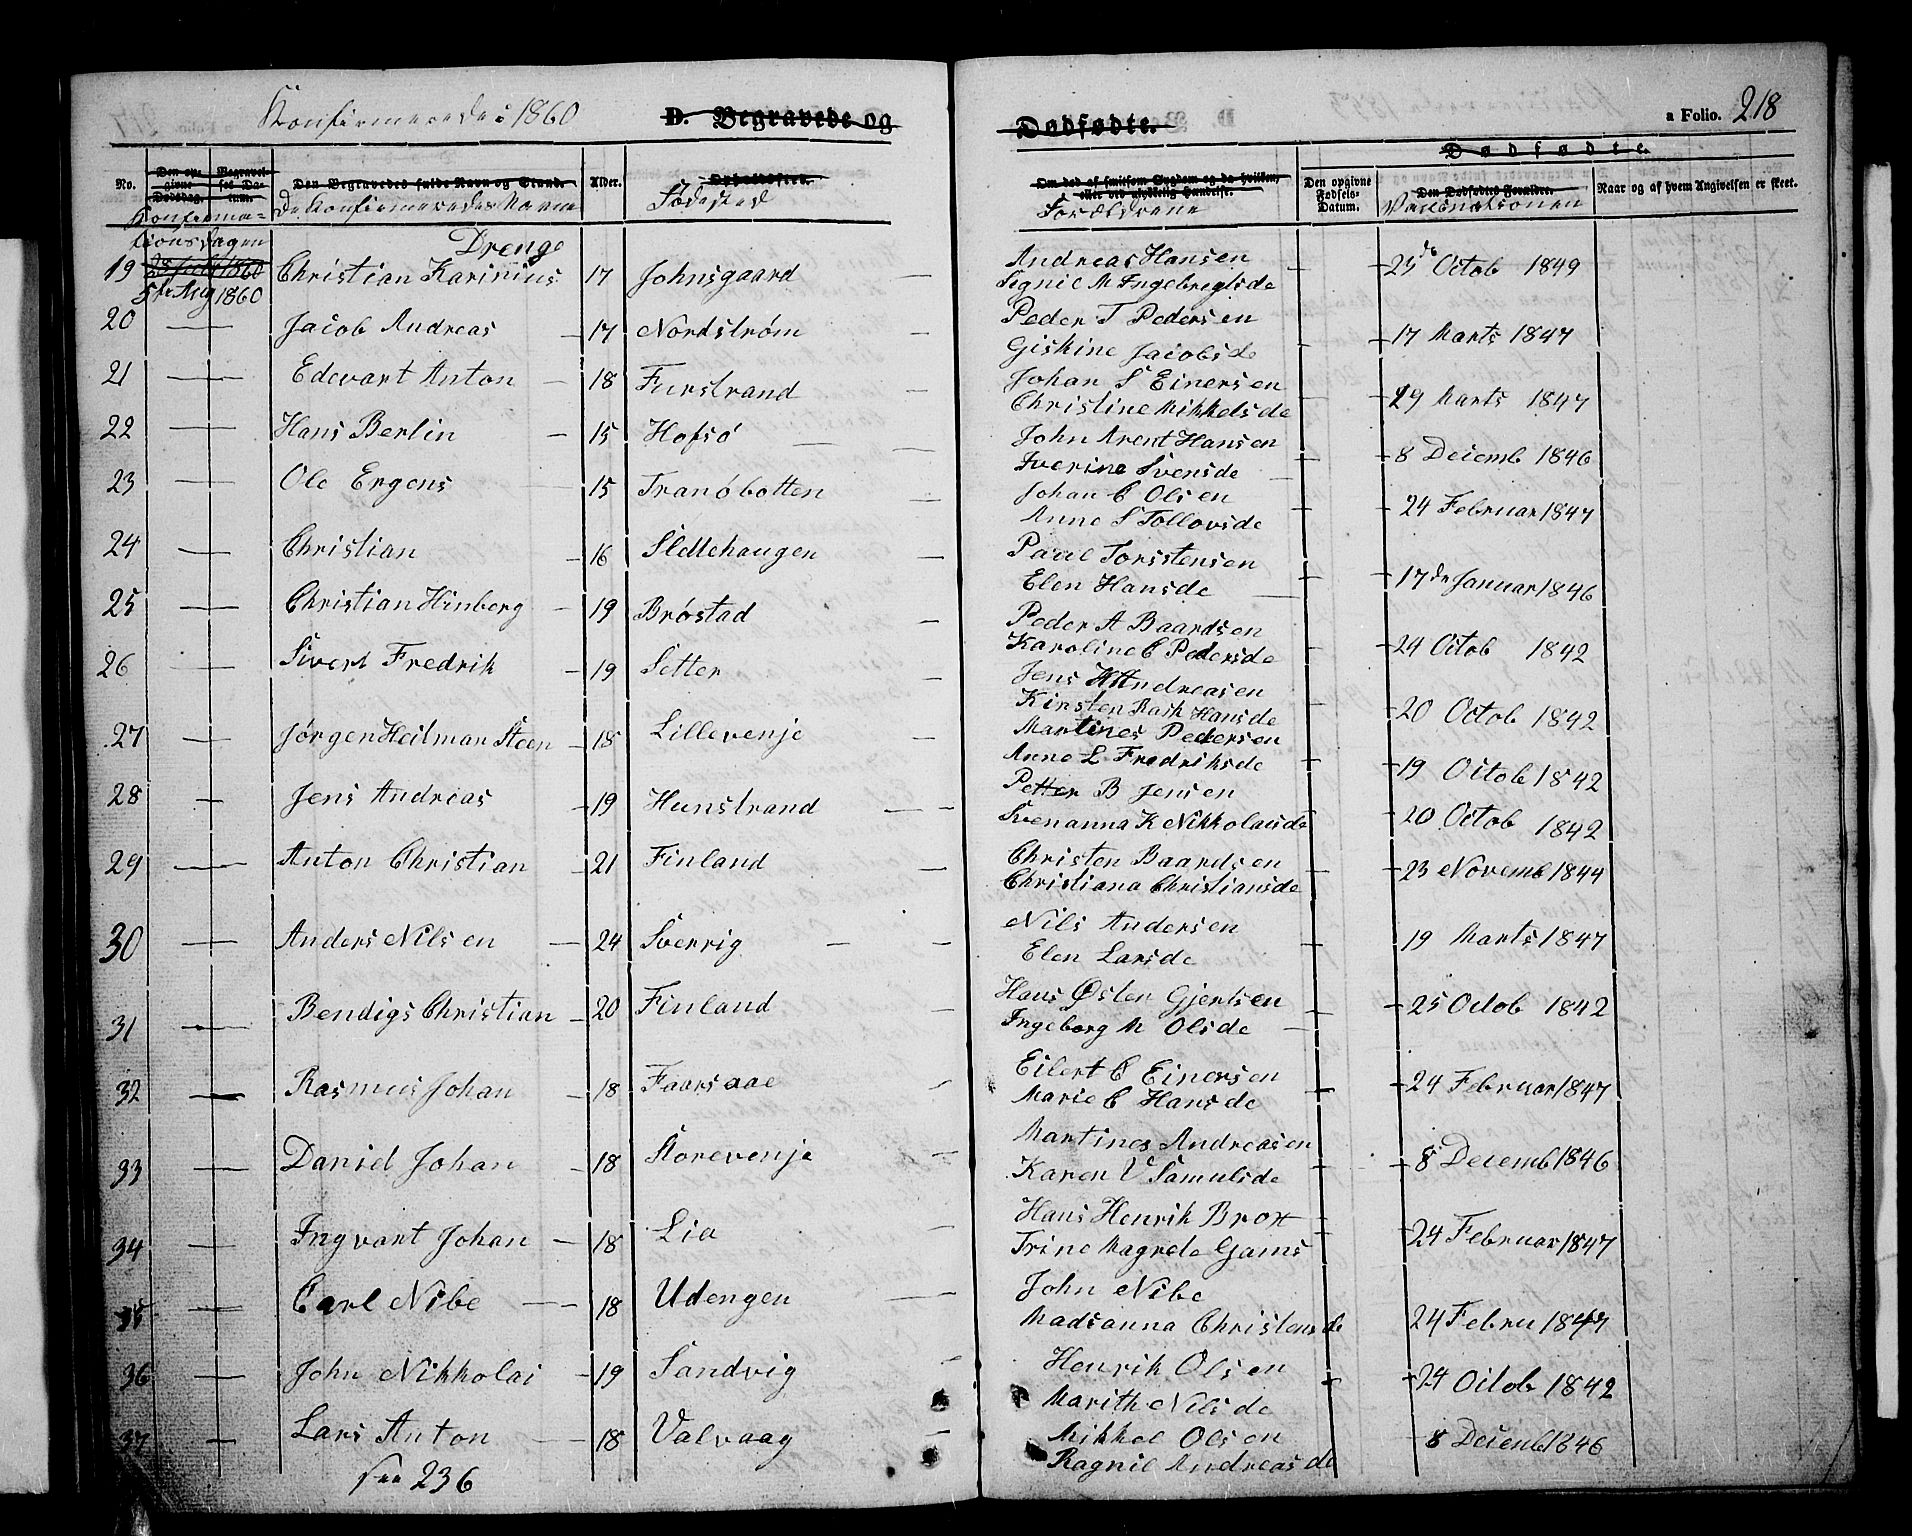 Konfirmerede i 1860 D. Begravede og Dødfødte. a Folio. 218
Dødfødte.
No. Den opgivne Dødsdag. Begravelses Datum. Den Begravedes fulde Navn og Stand. Alder. Om død af smitsom Sygdom og da hvilken, eller ved ulykkelig Hændelse. Den opgivne Fødsels-Datum. Den Dødfødtes Forældre. Naar og af hvem Angivelsen er skeet.
Konfirmationsdagen De Konfirmeredes Navne Fødested Forældrene Vaccinationen
Drenge
19 28 Juli 1860 Christian Karinius 17 Johnsgaard Andreas Hansen 23de Octob 1849
5te Aug 1860 Signie M Ingebregtsde
20 Jacob Andreas 17 Nordstrøm Peder T Pedersen 17 Marts 1847
Giskine Jacobsde
21 Edevart Anton 18 Furstrand Johan S Einersen 29 Marts 1847
Christine Mikkelsde
22 Hans Berlin 15 Hofsø John Arent Hansen 8 Decemb 1846
Iverine Svensde
23 Ole Ergens 15 Tranøbotten Johan C Olsen 24 Februar 1847
Anne S Tollovsde
24 Christian 16 Slettehaugen Paael Torsstensen 17de Januar 1846
Elen Hansde
25 Christian Hinberg 19 Brøstad Peder A Baardsen 24 Octob 1842
Karoline C Pedersde
26 Sivert Fredrik 19 Setter Jens H Andreasen 20 Octob 1842
Kirsten Rask Hansde
27 Jørgen Heilman Steen 18 Lillevenje Martines Pedersen 19 Octob 1842
Anne L Fredriksde
28 Jens Andreas 19 Hunstrand Petter B Jensen 20 Octob 1842
Svenanna K Nikkolaisde
29 Anton Christian 21 Finland Christen Baardsen 23 Novemb 1844
Christiana Christiansde
30 Anders Nilsen 24 Sverrig Nils Andersen 19 Marts 1847
Elen Larsde
31 Bendigs Christian 20 Finland Hans Østen Gjertsen 25 Octob 1842
Ingeborg M Olsde
32 Rasmus Johan 18 Faarsaae Eilert C Einersen 24 Februar 1847
Marie C Hansde
33 Daniel Johan 18 Storevenje Martines Andreasen 8 Decemb 1846
Karen V Samulsde
34 Ingvart Johan 18 Lia Hans Henrik Brox 24 Februar 1847
Trine Magrede Gams
35 Carl Nibe 18 Udengen John Nibe 24 Febru 1847
Madsanna Christensde
36 John Nikkolai 19 Sandvig Henrik Olsen 24 Octob 1842
Marith Nilsde
37 Lars Anton 18 Valvaag Mikkel Olsen 8 Decemb 1846
Ragnil Andreasde
saa 236